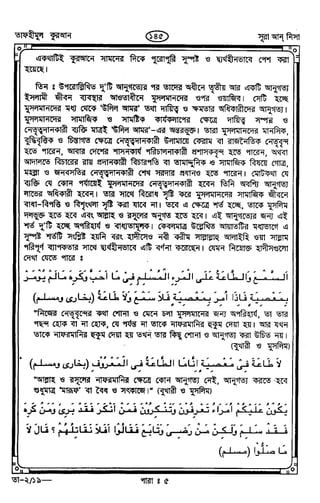 তাফহীমুল কুরআন
১৪৫
সূরা আন্ নিসা
একথাটিই কুরআনে সামনের দিকে পুরোপুরি সুস্পষ্ট ও দ্ব্যর্থহীনভাবে পেশ করা
হয়েছে।
তিন ঃ উপরোল্লিখিত দু'টি আনুগত্যের পর তাদের অধীনে তৃতীয় আর একটি আনুগত্য
ইসলামী জীবন ব্যবস্থার আওতাধীনে মুসলমানদের ওপর ওয়াজিব। সেটি হচ্ছে
মুসলমানদের মধ্য থেকে 'উলিল আমর' তথা দায়িত্ব ও ক্ষমতার অধিকারীদের আনুগত্য।
মুসলমানদের সামাজিক ও সামষ্টিক কার্যকলাপের ক্ষেত্রে দায়িত্ব সম্পন্ন ও
নেতৃত্বদানকারী ব্যক্তি মাত্রই 'উলিল আমর'–এর অন্তরভুক্ত। তারা মুসলমানদের মানসিক,
বুদ্ধিবৃত্তিক ও চিন্তাগত ক্ষেত্রে নেতৃত্বদানকারী উলামায়ে কেরাম বা রাজনৈতিক নেতৃবৃন্দ
হতে পারেন, আবার দেশের শাসনকার্য পরিচালনাকারী প্রশাসকবৃন্দ হতে পারেন, অথবা
আদালতে বিচারের রায় প্রদানকারী বিচারপতি বা তামাদ্দুনিক ও সামাজিক বিষয়ে গোত্র,
মহল্লা ও জনবসতির নেতৃত্বদানকারী শেখ সরদার প্রধানও হতে পারেন। মোটকথা যে
ব্যক্তি যে কোন পর্যায়েই মুসলমানদের নেতৃত্বদানকারী হবেন তিনি অবশ্যি আনুগত্য
লাভের অধিকারী হবেন। তার সাথে বিরোধ সৃষ্টি করে মুসলমানদের সামাজিক জীবনে
বাধা–বিপত্তি ও বিশৃংখলা সৃষ্টি করা যাবে না। তবে এ ক্ষেত্রে শর্ত হচ্ছে, তাকে মুসলিম
দলভুক্ত হতে হবে এবং আল্লাহ ও রসূলের অনুগত হতে হবে। এই আনুগত্যের জন্য এই
শর্ত দু'টি হচ্ছে অপরিহার্য ও বাধ্যতামূলক। কেবলমাত্র উল্লেখিত আয়াতটির মধ্যভাগে এ
সুস্পষ্ট শর্তটি সংশ্লিষ্ট হয়নি বরং হাদীসেও নবী করীম সাল্লাল্লাহু আলাইহি ওয়া সাল্লাম
পরিপূর্ণ ব্যাপকতার সাথে দ্ব্যর্থহীনভাবে এটি বর্ণনা করেছেন। যেমন নিম্নোক্ত হাদীসগুলো
দেখা যেতে পারে ঃ
السَّمْعُ وَالطَّاعَةُ عَلَى الْمَرْءِ الْمُسْلِمِ فِى مَا اَحَبَّ وَكَرِهَ مَالَمْ يُؤْمَرْ
بِمَعْصِيَةٍ فَاِذَا اُمِرَ بِمَعْصِيَةٍ فَلَا سَمْعَ وَلَا طَاعَةَ (بخارى ومسلم)
"নিজের নেতৃবৃন্দের কথা শোনা ও মেনে চলা মুসলমানের জন্য অপরিহার্য, তা তার
পছন্দ হোক বা না হোক, যে পর্যন্ত না তাকে নাফরমানির হুকুম দেয়া হয়। আর যখন
তাকে নাফরমানির হুকুম দেয়া হয় তখন তার কিছু শোনা ও আনুগত্য করা উচিত নয়।
(বুখারী ও মুসলিম)
لَا طَاعَةَ فِى مَعْصِيَةٍ اِنَّمَا الطَّاعَةُ فِى الْمَعْرُوْفِ (بخارى ومسلم)
"আল্লাহ ও রসূলের নাফরমানির ক্ষেত্রে কোন আনুগত্য নেই, আনুগত্য করতে হবে
শুধুমাত্র 'মারুফ' বা বৈধ ও সৎকাজে।" (বুখারী ও মুসলিম)
يَكُوْنُ عَلَيْكُمْ اُمَرَاءُ تَعْرِفُوْنَ وَتُنْكِرُوْنَ فَمَنْ اَنْكَرَ فَقَدْ بَرِئَ وَمَنْ كَرِهَ
فَقَدْ سَلِمَ وَلٰكِنْ مَنْ رَضِىَ وَتَابَعَ فَقَالُوْا اَفَلَا نُقَاتِلُهُمْ ؟ قَالَ لَا
مَا صَلُّوْا (مسلم)
তা–২/১৯—
পারা ঃ ৫